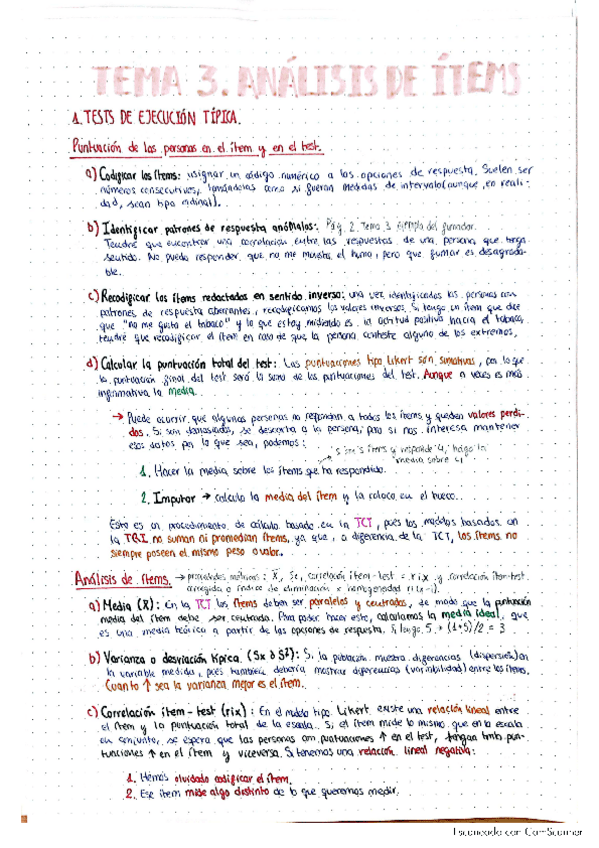 TEMA 3. ANÁLISIS DE ÍTEMS
1. TESTS DE EJECUCIÓN TÍPICA.
Puntuación de las personas en el ítem y en el test.
a) Codificar los ítems: asignar un código numérico a las opciones de respuesta. Suelen ser
números consecutivos, tomándolas como si fueran medidas de intervalo (aunque, en reali-
dad, sean tipo ordinal).
b) Identificar patrones de respuesta anómalos: Pág. 2. Tema 3 ejemplo del fumador.
Tendrá que encontrar una correlación entre las respuestas de una persona que tenga
sentido. No puedo responder que no me molesta el humo, pero que fumar es desagrada-
ble.
c) Recodificar los ítems redactados en sentido inverso: una vez identificados las personas con
patrones de respuesta aberrantes, recodificamos los valores inversos. Si tengo un ítem que dice
que "no me gusta el tabaco" y lo que estoy midiendo es la actitud positiva hacia el tabaco,
tendré que recodificar el ítem en caso de que la persona conteste alguno de los extremos.
d) Calcular la puntuación total del test: Las puntuaciones tipo Likert son sumativas, por lo que
la puntuación final del test será la suma de las puntuaciones del test. Aunque a veces es más
informativa la media.
→ Puede ocurrir que algunas personas no respondan a todos los ítems y queden valores perdi-
dos. Si son demasiados, se descarta a la persona, pero si nos interesa mantener
esos datos por lo que sea, podemos:
5 ítems y responde 4, hago la
media sobre 4
1. Hacer la media sobre los ítems que ha respondido.
2. Imputar → calculo la media del ítem y la coloco en el hueco.
Este es un procedimiento de cálculo basado en la TCT, pues los modelos basados en
la TRI no suman ni promedian ítems, ya que, a diferencia de la TCT, los ítems no
siempre poseen el mismo peso o valor.
Análisis de ítems. → propiedades métricas: X, Sx, correlación ítem-test = rix y correlación ítem-test
corregida o índice de eliminación homogeneidad ri(x-i).
a) Media (X̄): En la TCT los ítems deben ser paralelos y centrados, de modo que la puntuación
media del ítem debe ser centrada. Para poder hacer esto, calculamos la media ideal, que
es una media teórica a partir de las opciones de respuesta. Si tengo 5 → (1+5)/2 = 3
b) Varianza o desviación típica (Sx o S²): Si la población muestra diferencias (dispersión) en
la variable medida, pues también debería mostrar diferencias (variabilidad) entre los ítems.
Cuanto ↑ sea la varianza mejor es el ítem.
c) Correlación ítem-test (rix): En el modelo tipo Likert, existe una relación lineal entre
el ítem y la puntuación total de la escala. Si el ítem mide lo mismo que en la escala
en conjunto, se espera que las personas con puntuaciones ↑ en el test, tengan tmb pun-
tuaciones ↑ en el ítem y viceversa. Si tenemos una relación lineal negativa:
1. Hemos olvidado codificar el ítem.
2. Ese ítem mide algo distinto de lo que queremos medir.
Escaneado con CamScanner